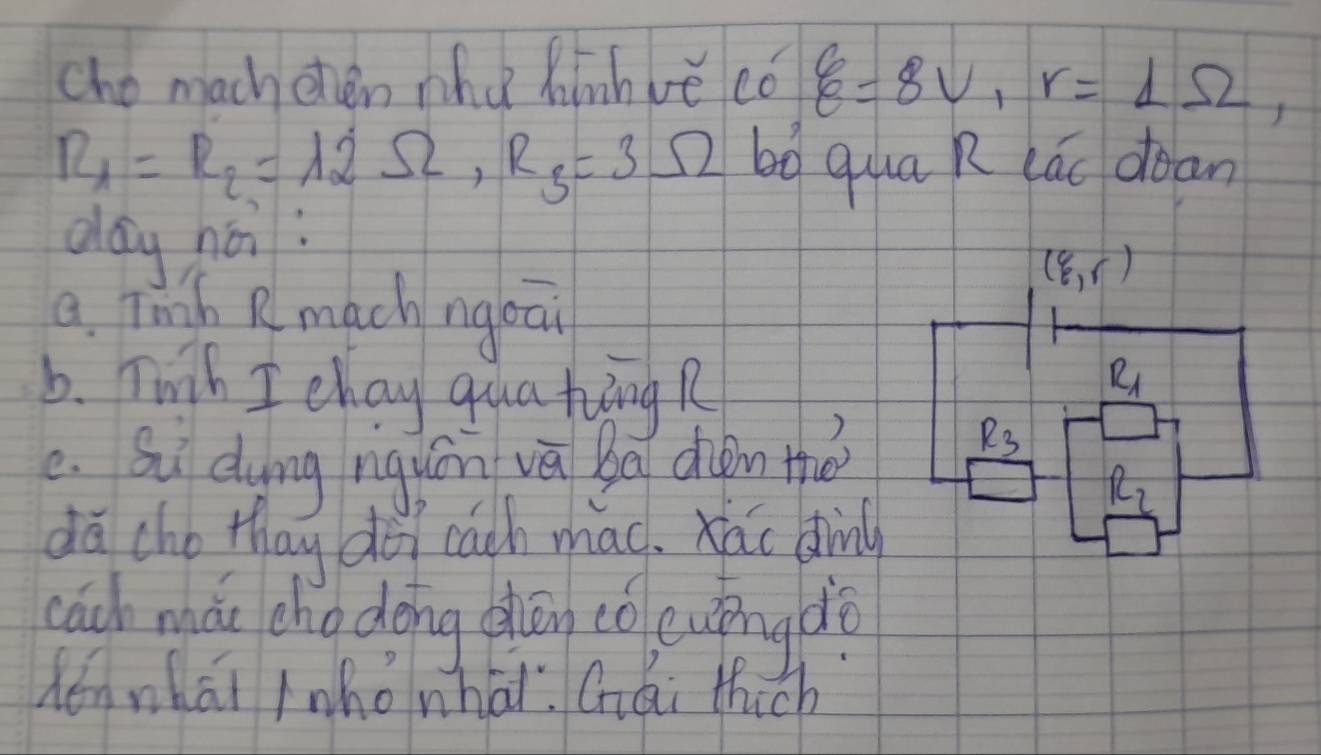 Cho mạch điện như hình vẽ có ξ = 8V, r = 1Ω,
R₁ = R₂ = 12Ω, R₃ = 3Ω bỏ qua R các đoạn
dây nối:
(ξ,r)
a. Tính R mạch ngoài
b. Tính I chạy qua từng R
R₁
c. Sử dụng nguồn và ba điện trở
R₃
R₂
đã cho thay đổi cách mắc. Xác định
cách mắc cho dòng điện có cường độ
lớn nhất / nhỏ nhất. Giải thích